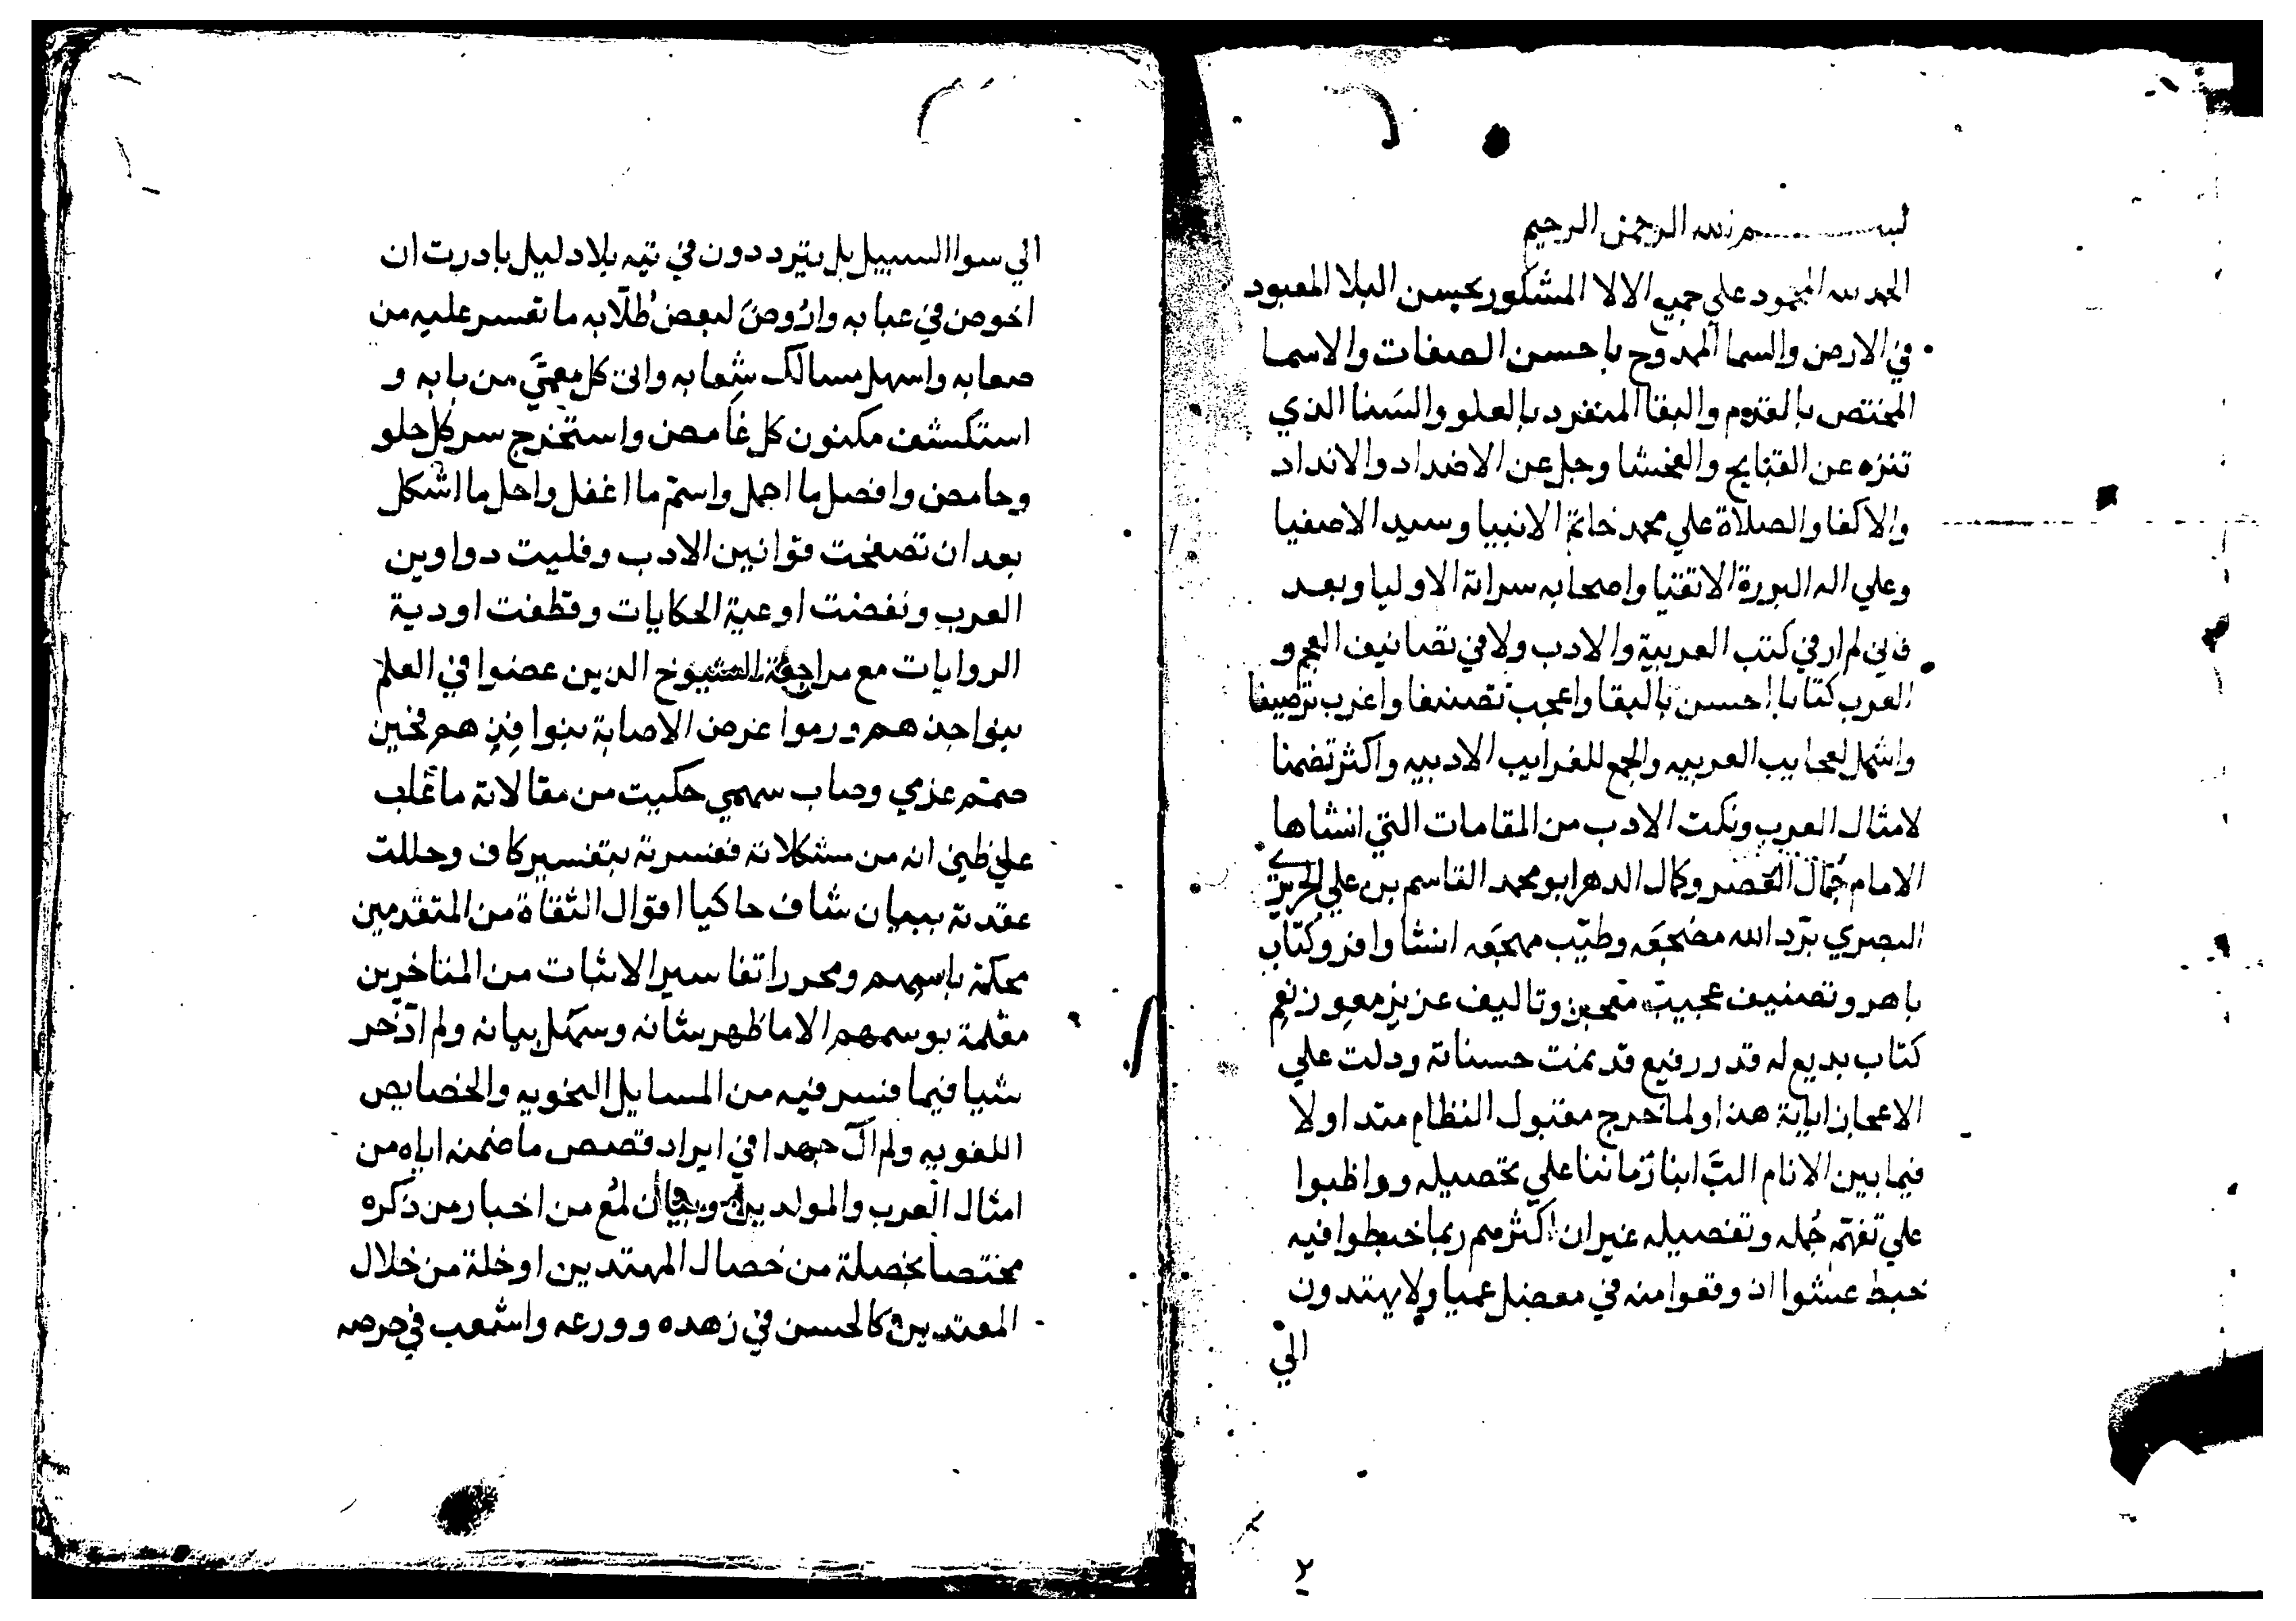 بسم الله الرحمن الرحيم
الحمد لله المحمود علي جميع الالا المشكور بحسن البلا المعبود
في الارض والسما الممدوح باحسن الصفات والاسما
المختص بالقدم والبقا المتفرد بالعلو والسَنا الذي
تنزه عن القبايح والفحشا وجل عن الاضداد والانداد
والاكفا والصلاة علي محمد خاتم الانبيا وسيد الاصفيا
وعلي اله البررة الاتقيا واصحابه سراة الاوليا وبعد
فاني لم ار في كتب العربية والادب ولا في تصانيف العجم و
العرب كتابا احسن تاليفا واعجب تصنيفا واغرب ترصيفا
واشمل لعجايب العربيه واجمع للغرايب الادبيه واكثر تضمنا
لامثال العرب ونكت الادب من المقامات التي انشاها
الامام جمال العصر وكمال الدهر ابو محمد القاسم بن علي الحريري
البصري برّد الله مضجعَه وطيّب مهجعَه انشا وافر وكتاب
باهر وتصنيف عجيب معجز وتاليف عزيز معوز نعم
كتاب بديع له قدر رفيع قد نمت حسناته ودلت علي
الاعجاز اياته هذا ولما خرج مقبول النظام متداولا
فيما بين الانام البَّ ابنا زماننا علي تحصيله وواظبوا
علي تفهّم جُمله وتفصيله غير ان اكثرهم ربما خبطوا فيه
خبط عشوا اذ وقعوا منه في معضل عميا ولا يهتدون
الي
٢
الي سوا السبيل بل يترددون في تيه بلا دليل بادرت ان
اخوض في عبابه واروضَ لبعض طُلّابه ما تعسر عليه من
صعابه واسهل مسالك شِعابه واتي كل معمَّي من بابه و
استكشف مكنون كل غامض واستخرج سر كل حلو
وحامض وافصل ما اجمل واستم ما اغفل واحل ما اشكل
بعد ان تصفحت قوانين الادب وفليت دواوين
العرب ونفضت اوعية الحكايات وقطفت اودية
الروايات مع مراجعة الشيوخ الذين عضوا في العلم
بنواجذهم ورموا غرض الاصابة بنوافذهم فحين
صمم عزمي وصاب سهمي حكيت من مقالاته ما غلب
علي ظني انه من مشكلاته ففسرته بتفسير كاف وحللت
عقدته ببيان شاف حاكيا اقوال الثقاة من المتقدمين
محكمة باسمهم ومحررا تفاسير الاثبات من المتاخرين
معلمة بوسمهم الا ما ظهر شانه وسهُل بيانه ولم ادّخر
شيا فيما فسر فيه من المسايل النحويه والخصايص
اللغويه ولم آل جهدا في ايراد قصص ما ضمنه اياه من
امثال العرب والمولدين وبيان لمُع من اخبار من ذكره
مختصا بخصلة من خصال المهتدين او خلة من خلال
المعتدين كالحسن في زهده وورعه واشعب في حرصه